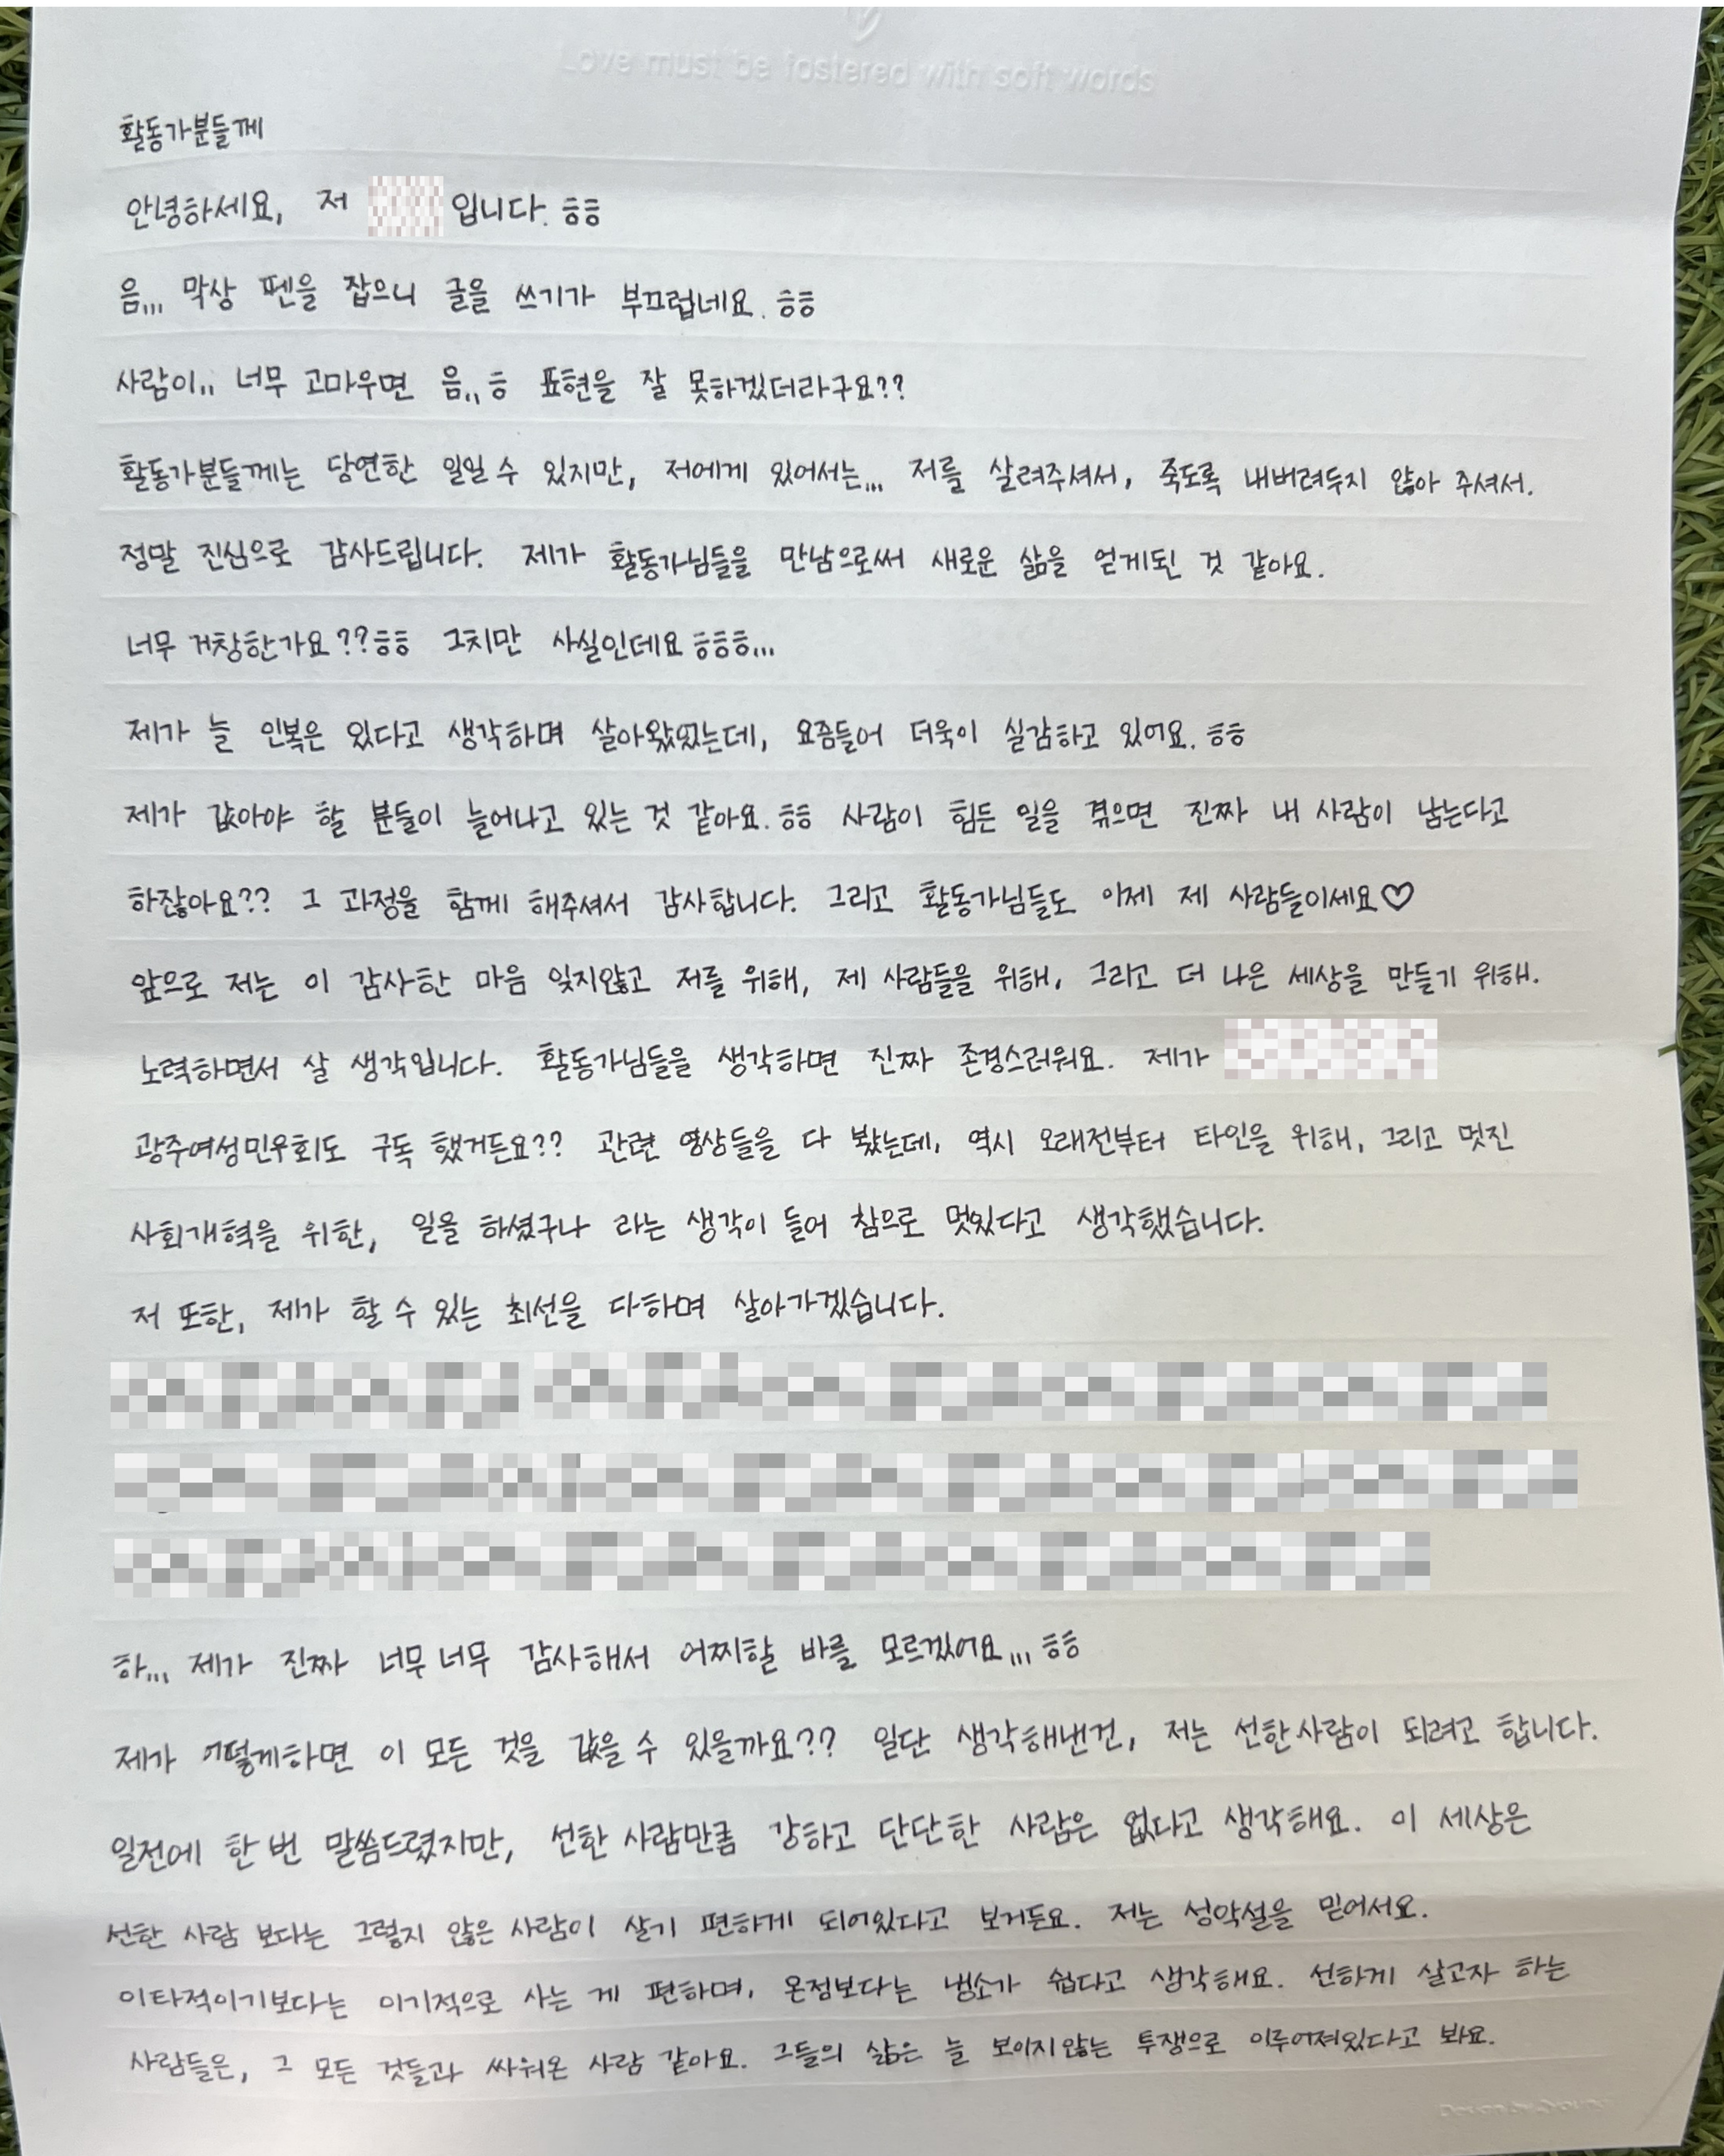 Love must be fostered with soft words
활동가분들께
안녕하세요, 저 입니다. ㅎㅎ
음... 막상 펜을 잡으니 글을 쓰기가 부끄럽네요. ㅎㅎ
사람이.. 너무 고마우면 음..ㅎ 표현을 잘 못하겠더라구요??
활동가분들께는 당연한 일일 수 있지만, 저에게 있어서는... 저를 살려주셔서, 죽도록 내버려두지 않아 주셔서.
정말 진심으로 감사드립니다. 제가 활동가님들을 만남으로써 새로운 삶을 얻게된 것 같아요.
너무 거창한가요??ㅎㅎ 그치만 사실인데요 ㅎㅎㅎ...
제가 늘 인복은 있다고 생각하며 살아왔었는데, 요즘들어 더욱이 실감하고 있어요. ㅎㅎ
제가 갚아야 할 분들이 늘어나고 있는 것 같아요. ㅎㅎ 사람이 힘든 일을 겪으면 진짜 내 사람이 남는다고
하잖아요?? 그 과정을 함께 해주셔서 감사합니다. 그리고 활동가님들도 이제 제 사람들이세요♡
앞으로 저는 이 감사한 마음 잊지않고 저를 위해, 제 사람들을 위해, 그리고 더 나은 세상을 만들기 위해.
노력하면서 살 생각입니다. 활동가님들을 생각하면 진짜 존경스러워요. 제가
광주여성민우회도 구독 했거든요?? 관련 영상들을 다 봤는데, 역시 오래전부터 타인을 위해, 그리고 멋진
사회개혁을 위한, 일을 하셨구나 라는 생각이 들어 참으로 멋있다고 생각했습니다.
저 또한, 제가 할 수 있는 최선을 다하며 살아가겠습니다.
하... 제가 진짜 너무 너무 감사해서 어찌할 바를 모르겠어요... ㅎㅎ
제가 어떻게하면 이 모든 것을 갚을 수 있을까요?? 일단 생각해낸건, 저는 선한 사람이 되려고 합니다.
일전에 한 번 말씀드렸지만, 선한 사람만큼 강하고 단단한 사람은 없다고 생각해요. 이 세상은
선한 사람 보다는 그렇지 않은 사람이 살기 편하게 되어있다고 보거든요. 저는 성악설을 믿어서요.
이타적이기보다는 이기적으로 사는 게 편하며, 온정보다는 냉소가 쉽다고 생각해요. 선하게 살고자 하는
사람들은, 그 모든 것들과 싸워온 사람 같아요. 그들의 삶은 늘 보이지않는 투쟁으로 이루어져있다고 봐요.